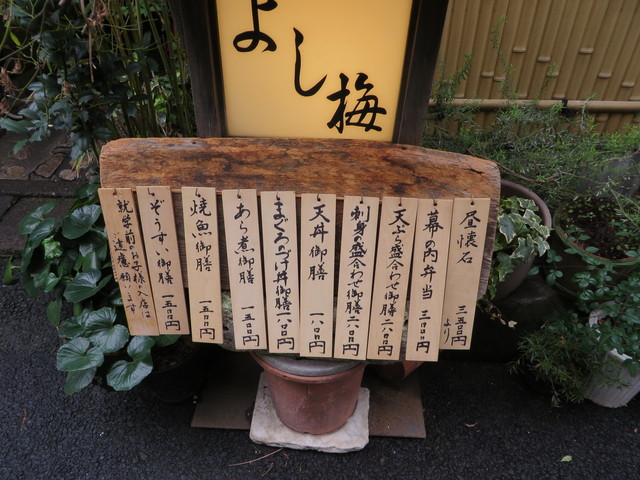 よし梅
昼懐石 三五〇〇円より
幕の内弁当 三〇〇〇円
天ぷら盛合わせ御膳 二八〇〇円
刺身の盛合わせ御膳 二六〇〇円
天丼御膳 一八〇〇円
まぐろのづけ丼御膳 一八〇〇円
あら煮御膳 一五〇〇円
焼魚御膳 一五〇〇円
ぞうすい御膳 一五〇〇円
就学前のお子様の入店は
ご遠慮願います